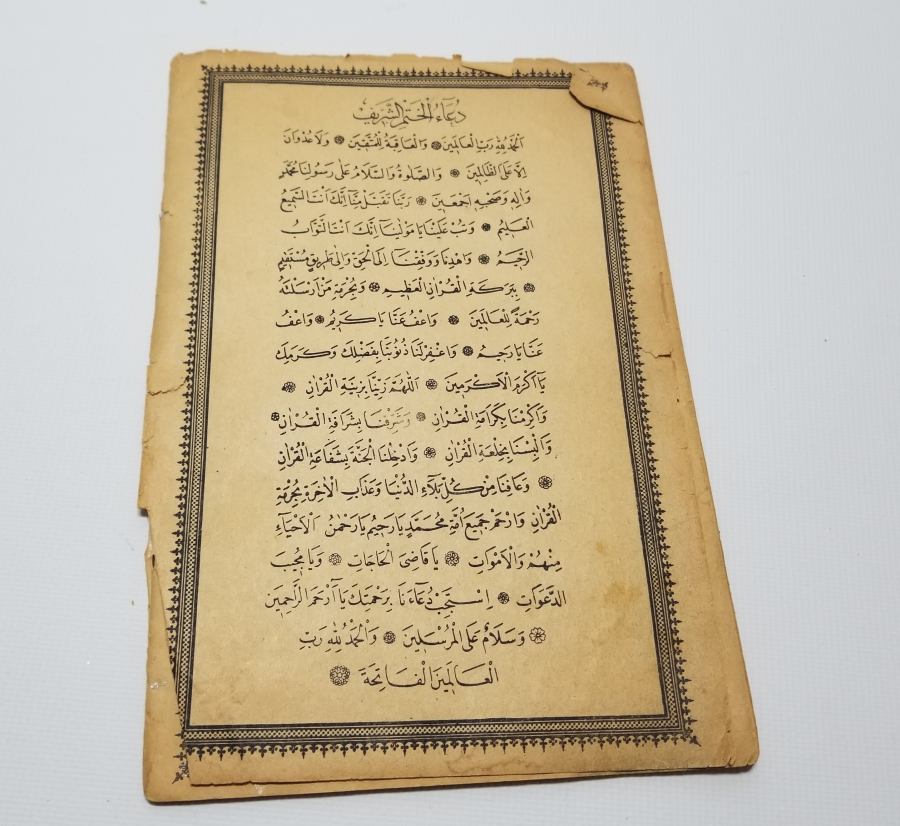 دُعَاءُ الْخَتْمِ الشَّرِيفِ
اَلْحَمْدُ لِلّٰهِ رَبِّ الْعَالَمِينَ وَالْعَاقِبَةُ لِلْمُتَّقِينَ وَلَا عُدْوَانَ
اِلَّا عَلَى الظَّالِمِينَ وَالصَّلٰوةُ وَالسَّلَامُ عَلٰى رَسُولِنَا مُحَمَّدٍ
وَاٰلِهِ وَصَحْبِهِ اَجْمَعِينَ رَبَّنَا تَقَبَّلْ مِنَّا اِنَّكَ اَنْتَ السَّمِيعُ
الْعَلِيمُ وَتُبْ عَلَيْنَا يَا مَوْلٰينَا اِنَّكَ اَنْتَ التَّوَّابُ
الرَّحِيمُ وَاهْدِنَا وَوَفِّقْنَا اِلَى الْحَقِّ وَاِلٰى طَرِيقٍ مُسْتَقِيمٍ
بِبَرَكَةِ الْقُرْاٰنِ الْعَظِيمِ وَبِحُرْمَةِ مَنْ اَرْسَلْتَهُ
رَحْمَةً لِلْعَالَمِينَ وَاعْفُ عَنَّا يَا كَرِيمُ وَاعْفُ
عَنَّا يَا رَحِيمُ وَاغْفِرْ لَنَا ذُنُوبَنَا بِفَضْلِكَ وَكَرَمِكَ
يَا اَكْرَمَ الْاَكْرَمِينَ اَللّٰهُمَّ زَيِّنَّا بِزِينَةِ الْقُرْاٰنِ
وَاَكْرِمْنَا بِكَرَامَةِ الْقُرْاٰنِ وَشَرِّفْنَا بِشَرَافَةِ الْقُرْاٰنِ
وَاَلْبِسْنَا بِخِلْعَةِ الْقُرْاٰنِ وَاَدْخِلْنَا الْجَنَّةَ بِشَفَاعَةِ الْقُرْاٰنِ
وَعَافِنَا مِنْ كُلِّ بَلَاءِ الدُّنْيَا وَعَذَابِ الْاٰخِرَةِ بِحُرْمَةِ
الْقُرْاٰنِ وَارْحَمْ جَمِيعَ اُمَّةِ مُحَمَّدٍ يَا رَحِيمُ يَا رَحْمٰنُ اَلْاَحْيَاءِ
مِنْهُمْ وَالْاَمْوَاتِ يَا قَاضِيَ الْحَاجَاتِ وَيَا مُجِيبَ
الدَّعَوَاتِ اِسْتَجِبْ دُعَاءَنَا بِرَحْمَتِكَ يَا اَرْحَمَ الرَّاحِمِينَ
وَسَلَامٌ عَلَى الْمُرْسَلِينَ وَالْحَمْدُ لِلّٰهِ رَبِّ
الْعَالَمِينَ الْفَاتِحَةَ